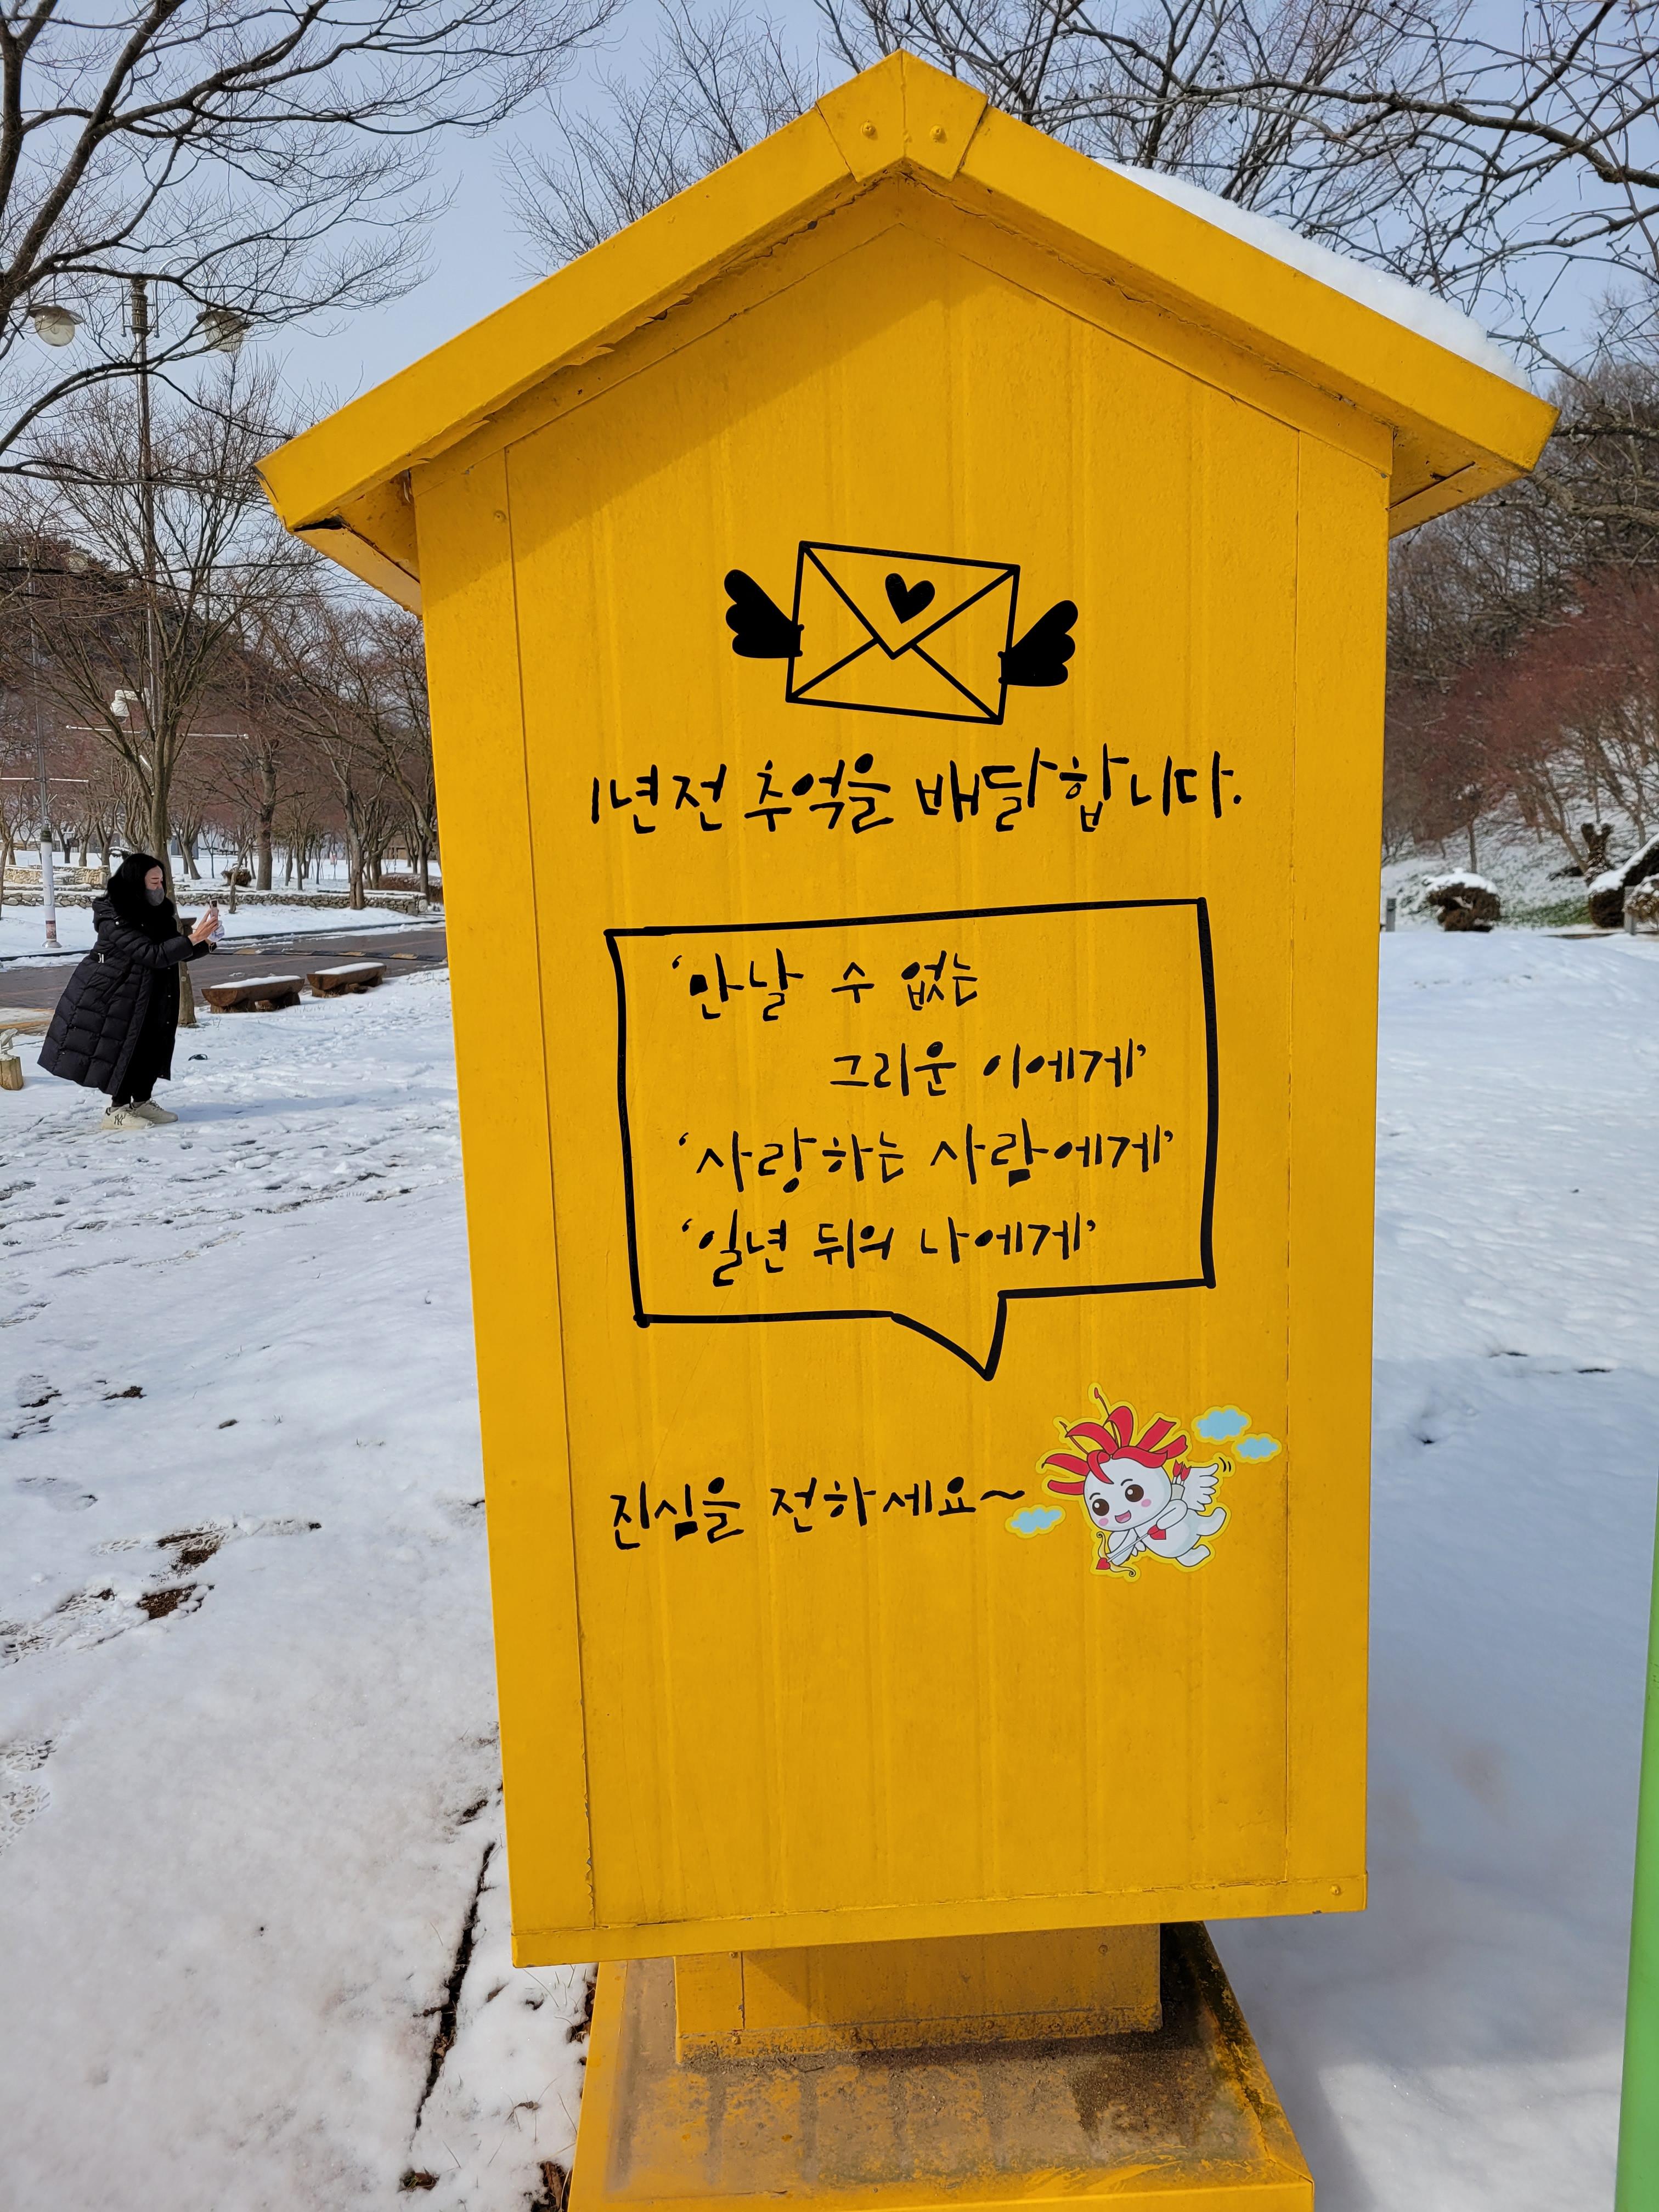 1년전 추억을 배달합니다.
'만날 수 없는
그리운 이에게'
'사랑하는 사람에게'
'일년 뒤의 나에게'
진심을 전하세요~